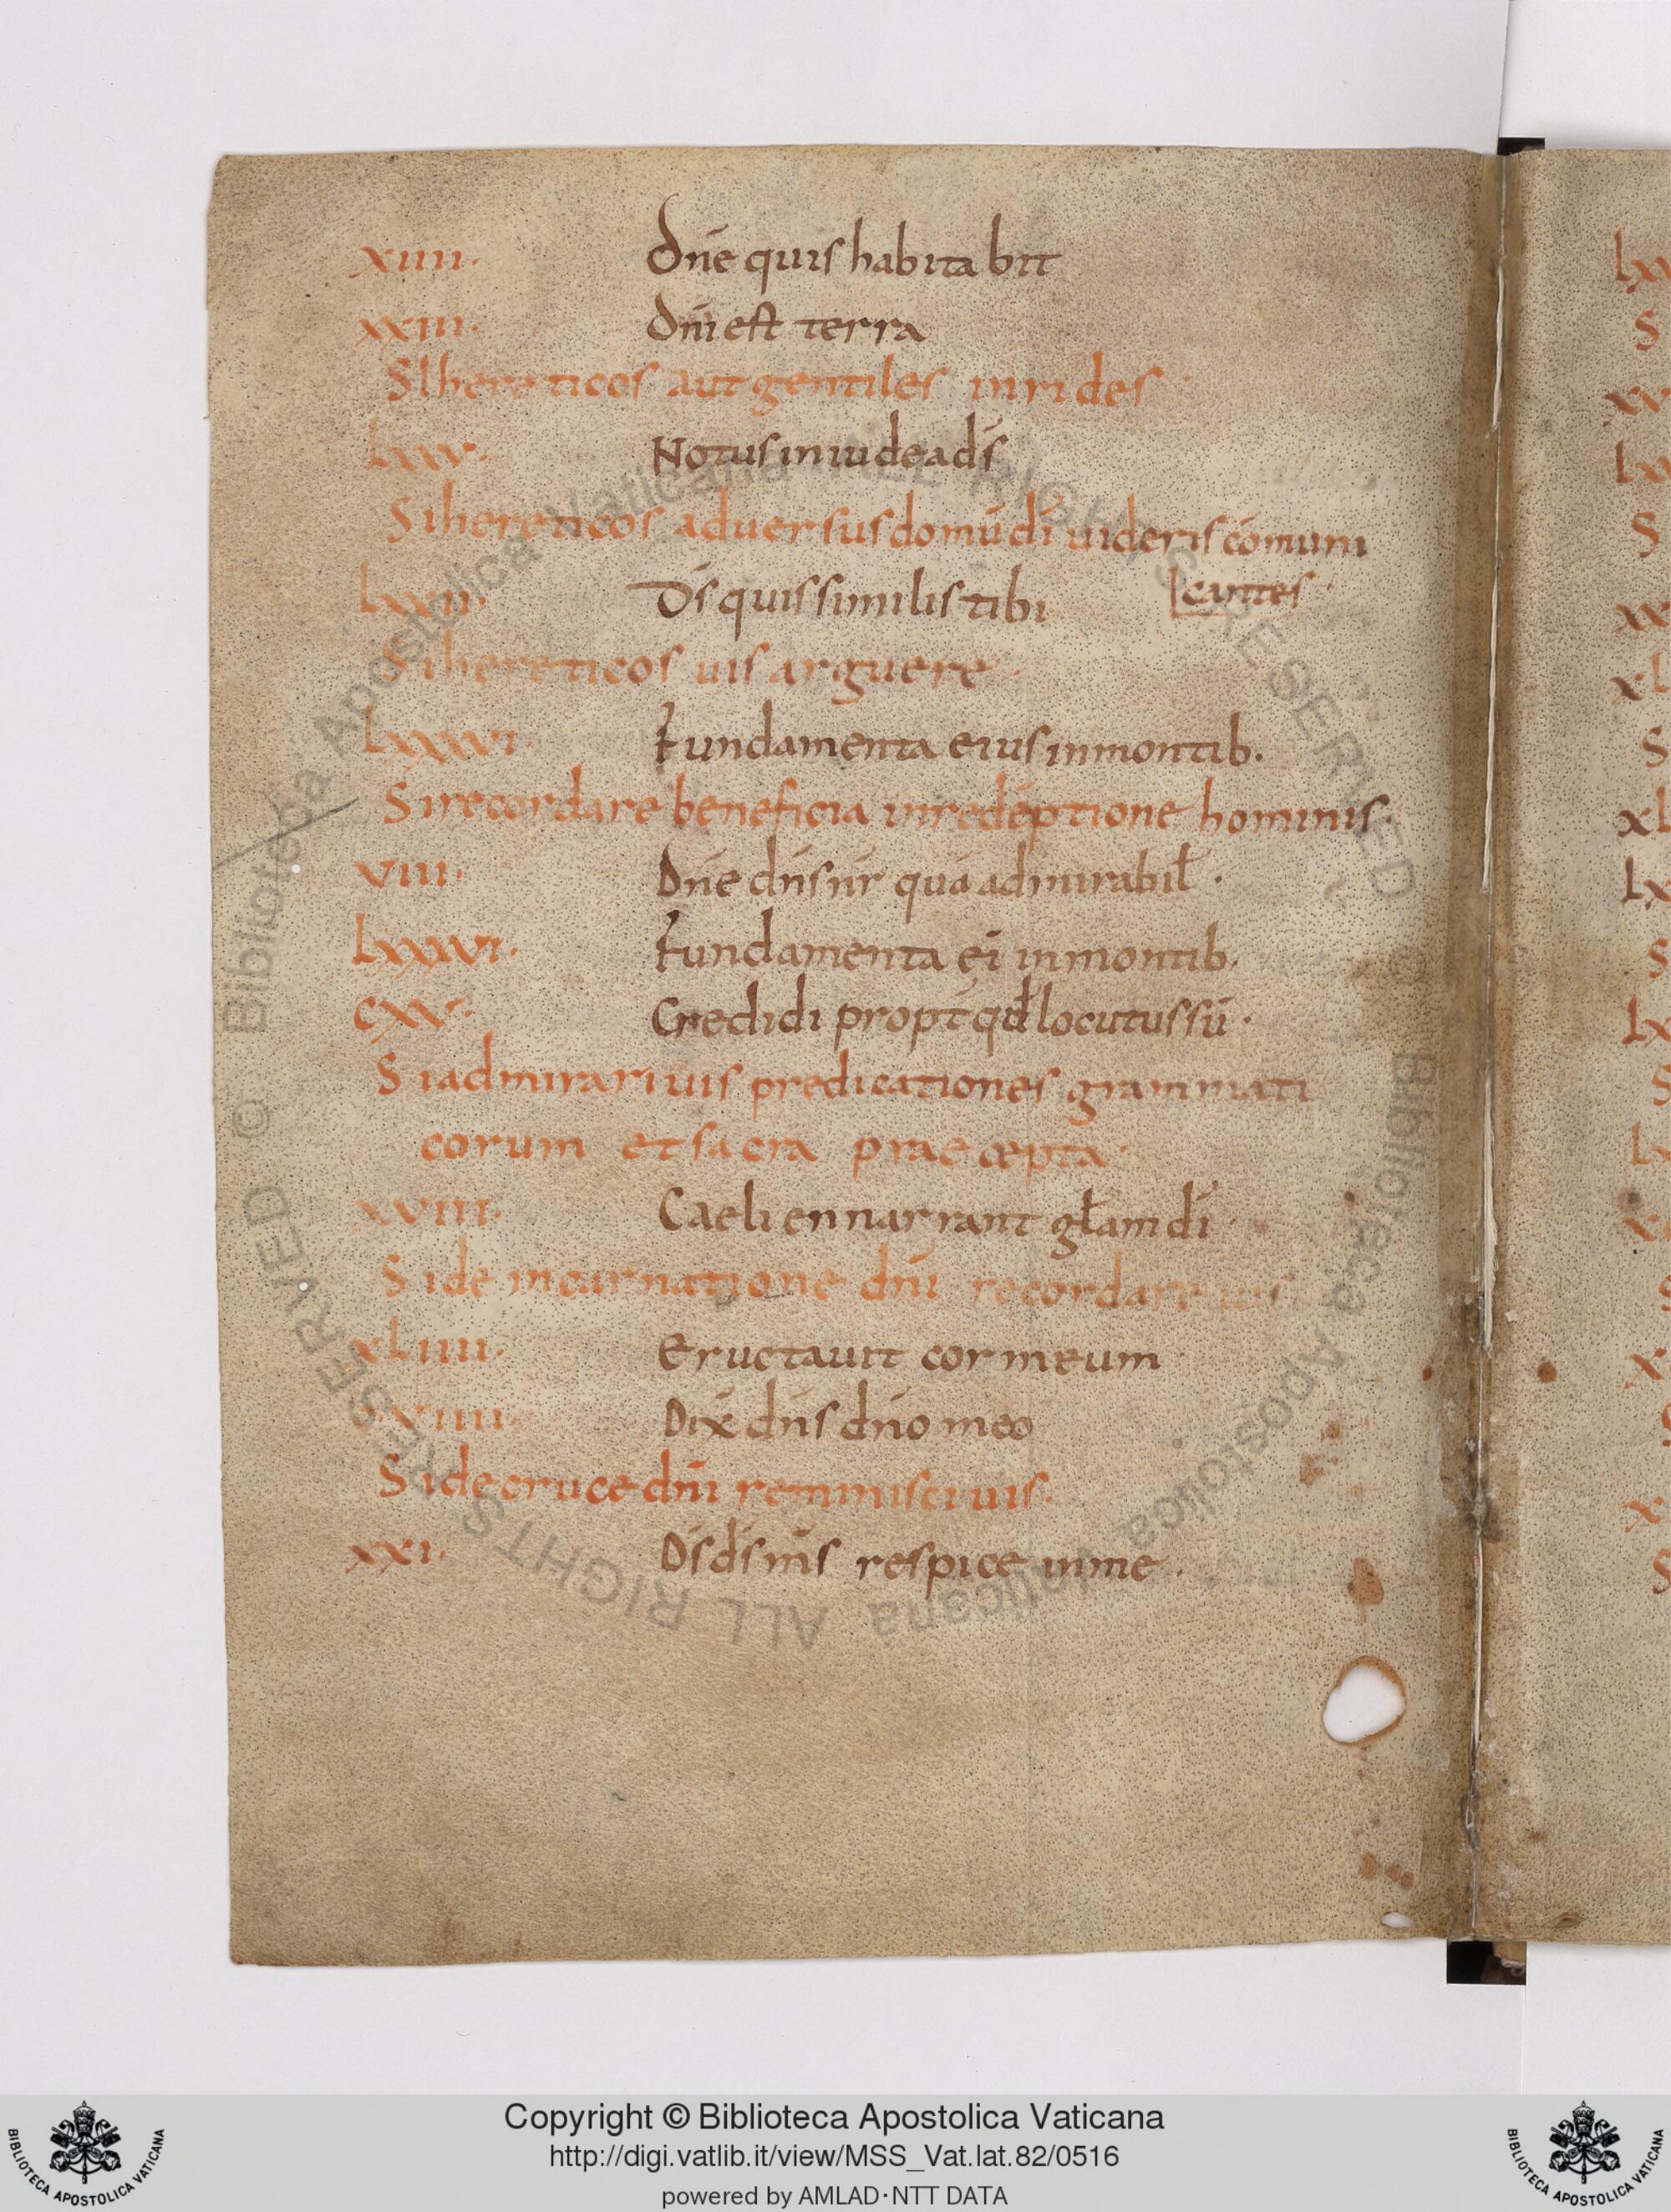 xiiii. Dn̄e quis habitabit
xxiii. Dn̄i est terra
Si hereticos aut gentiles inrides
Lxxv. Notus in iudea ds̄
Si hereticos aduersus domū dī uideris cōmuni
cantes
Lxxxii. Ds̄ quis similis tibi
Si hereticos uis arguere
Lxxxvi. Fundamenta eius in montib.
Si recordare beneficia in redēptione hominis.
viii. Dn̄e dn̄s nr̄ quā admirabil̄.
Lxxxvi. Fundamenta ei in montib.
cxv. Credidi propt̄ qd̄ locutus sū.
Si admirari uis predicationes grammati
corum et sacra praecepta.
xviii. Caeli ennarrant gl̄am dī
Si de incarnatione dn̄i recordare uis
xliiii. Eructauit cor meum
Dix dn̄s dn̄o meo
Si de cruce dn̄i reminisci uis.
xxi. Ds̄ ds̄ ms̄ respice in me.
Biblioteca Apostolica Vaticana ALL RIGHTS RESERVED © Biblioteca Apostolica Vaticana ALL RIGHTS RESERVED ©
Copyright © Biblioteca Apostolica Vaticana
http://digi.vatlib.it/view/MSS_Vat.lat.82/0516
powered by AMLAD·NTT DATA
BIBLIOTECA APOSTOLICA VATICANA
BIBLIOTECA APOSTOLICA VATICANA